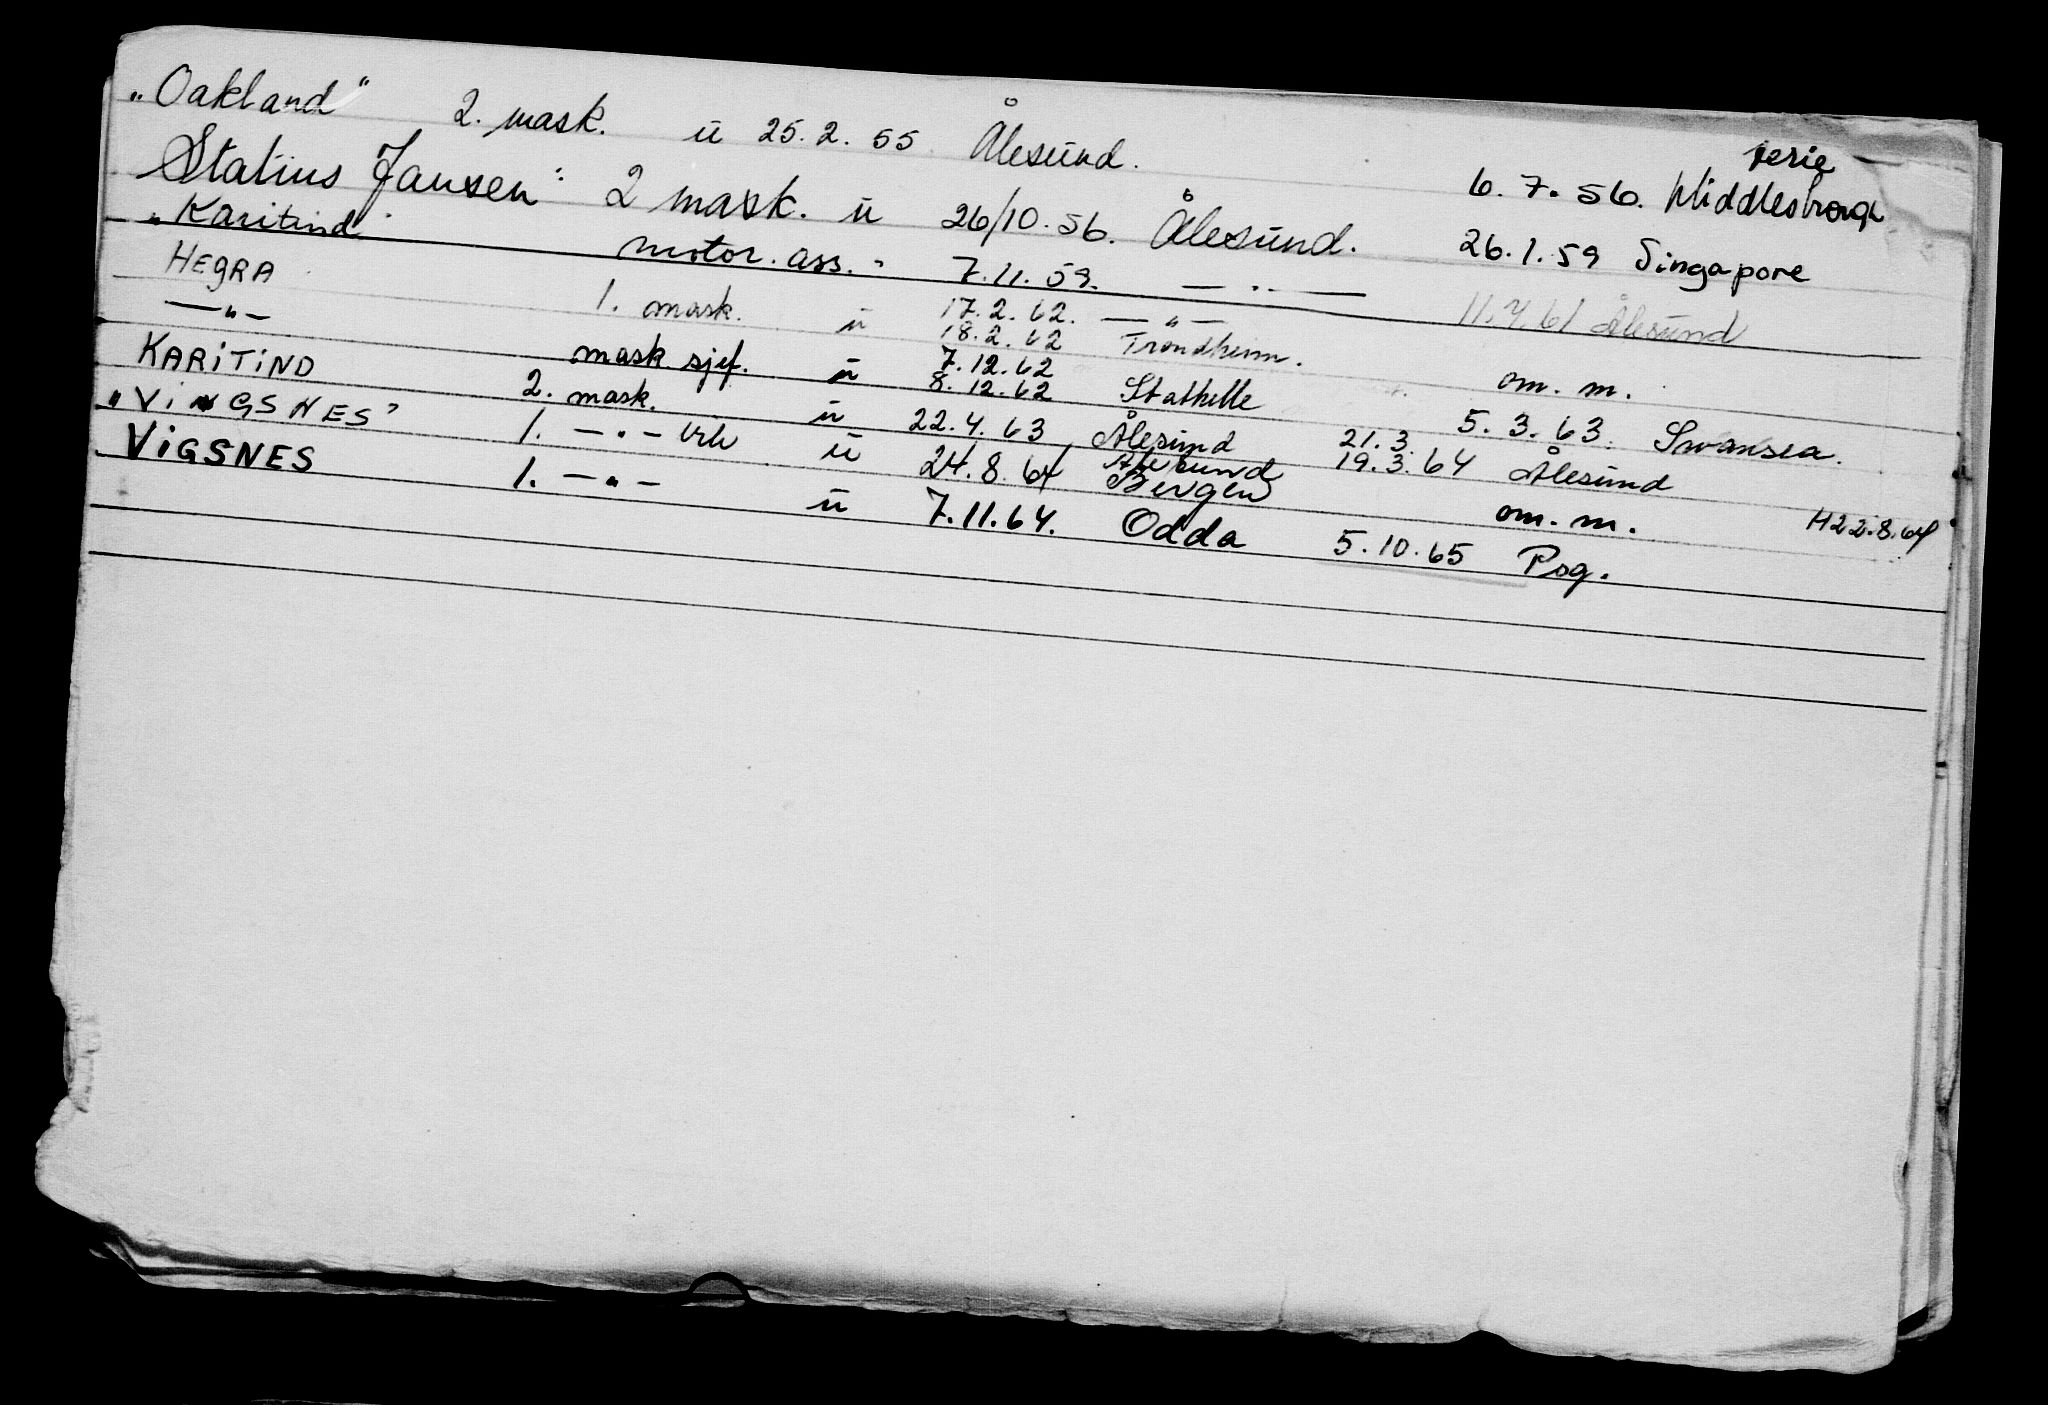 „Oakland" 2. mask. u 25.2.55 Ålesund. ferie 6.7.56. Middlesbrough
Statius Jansen" 2 mask. u 26/10.56. Ålesund. 26.1.59 Singapore
„Karitind motor. ass. " 7.11.59. — " — 11.4.61 Ålesund
HEGRA 1. mask. u 17.2.62. — " —
18.2.62 Trondheim. om. m.
— " — mask. sjef. u 7.12.62
8.12.62 Stathelle 5.3.63. Swansea.
KARITIND 2. mask. u 22.4.63 Ålesund 21.3.
19.3.64 Ålesund
„VINGSNES" 1. — " — u 24.8.64 Ålesund
Bergen om. m. H22.8.64
VIGSNES 1. — " — u 7.11.64. Odda 5.10.65 Psg.